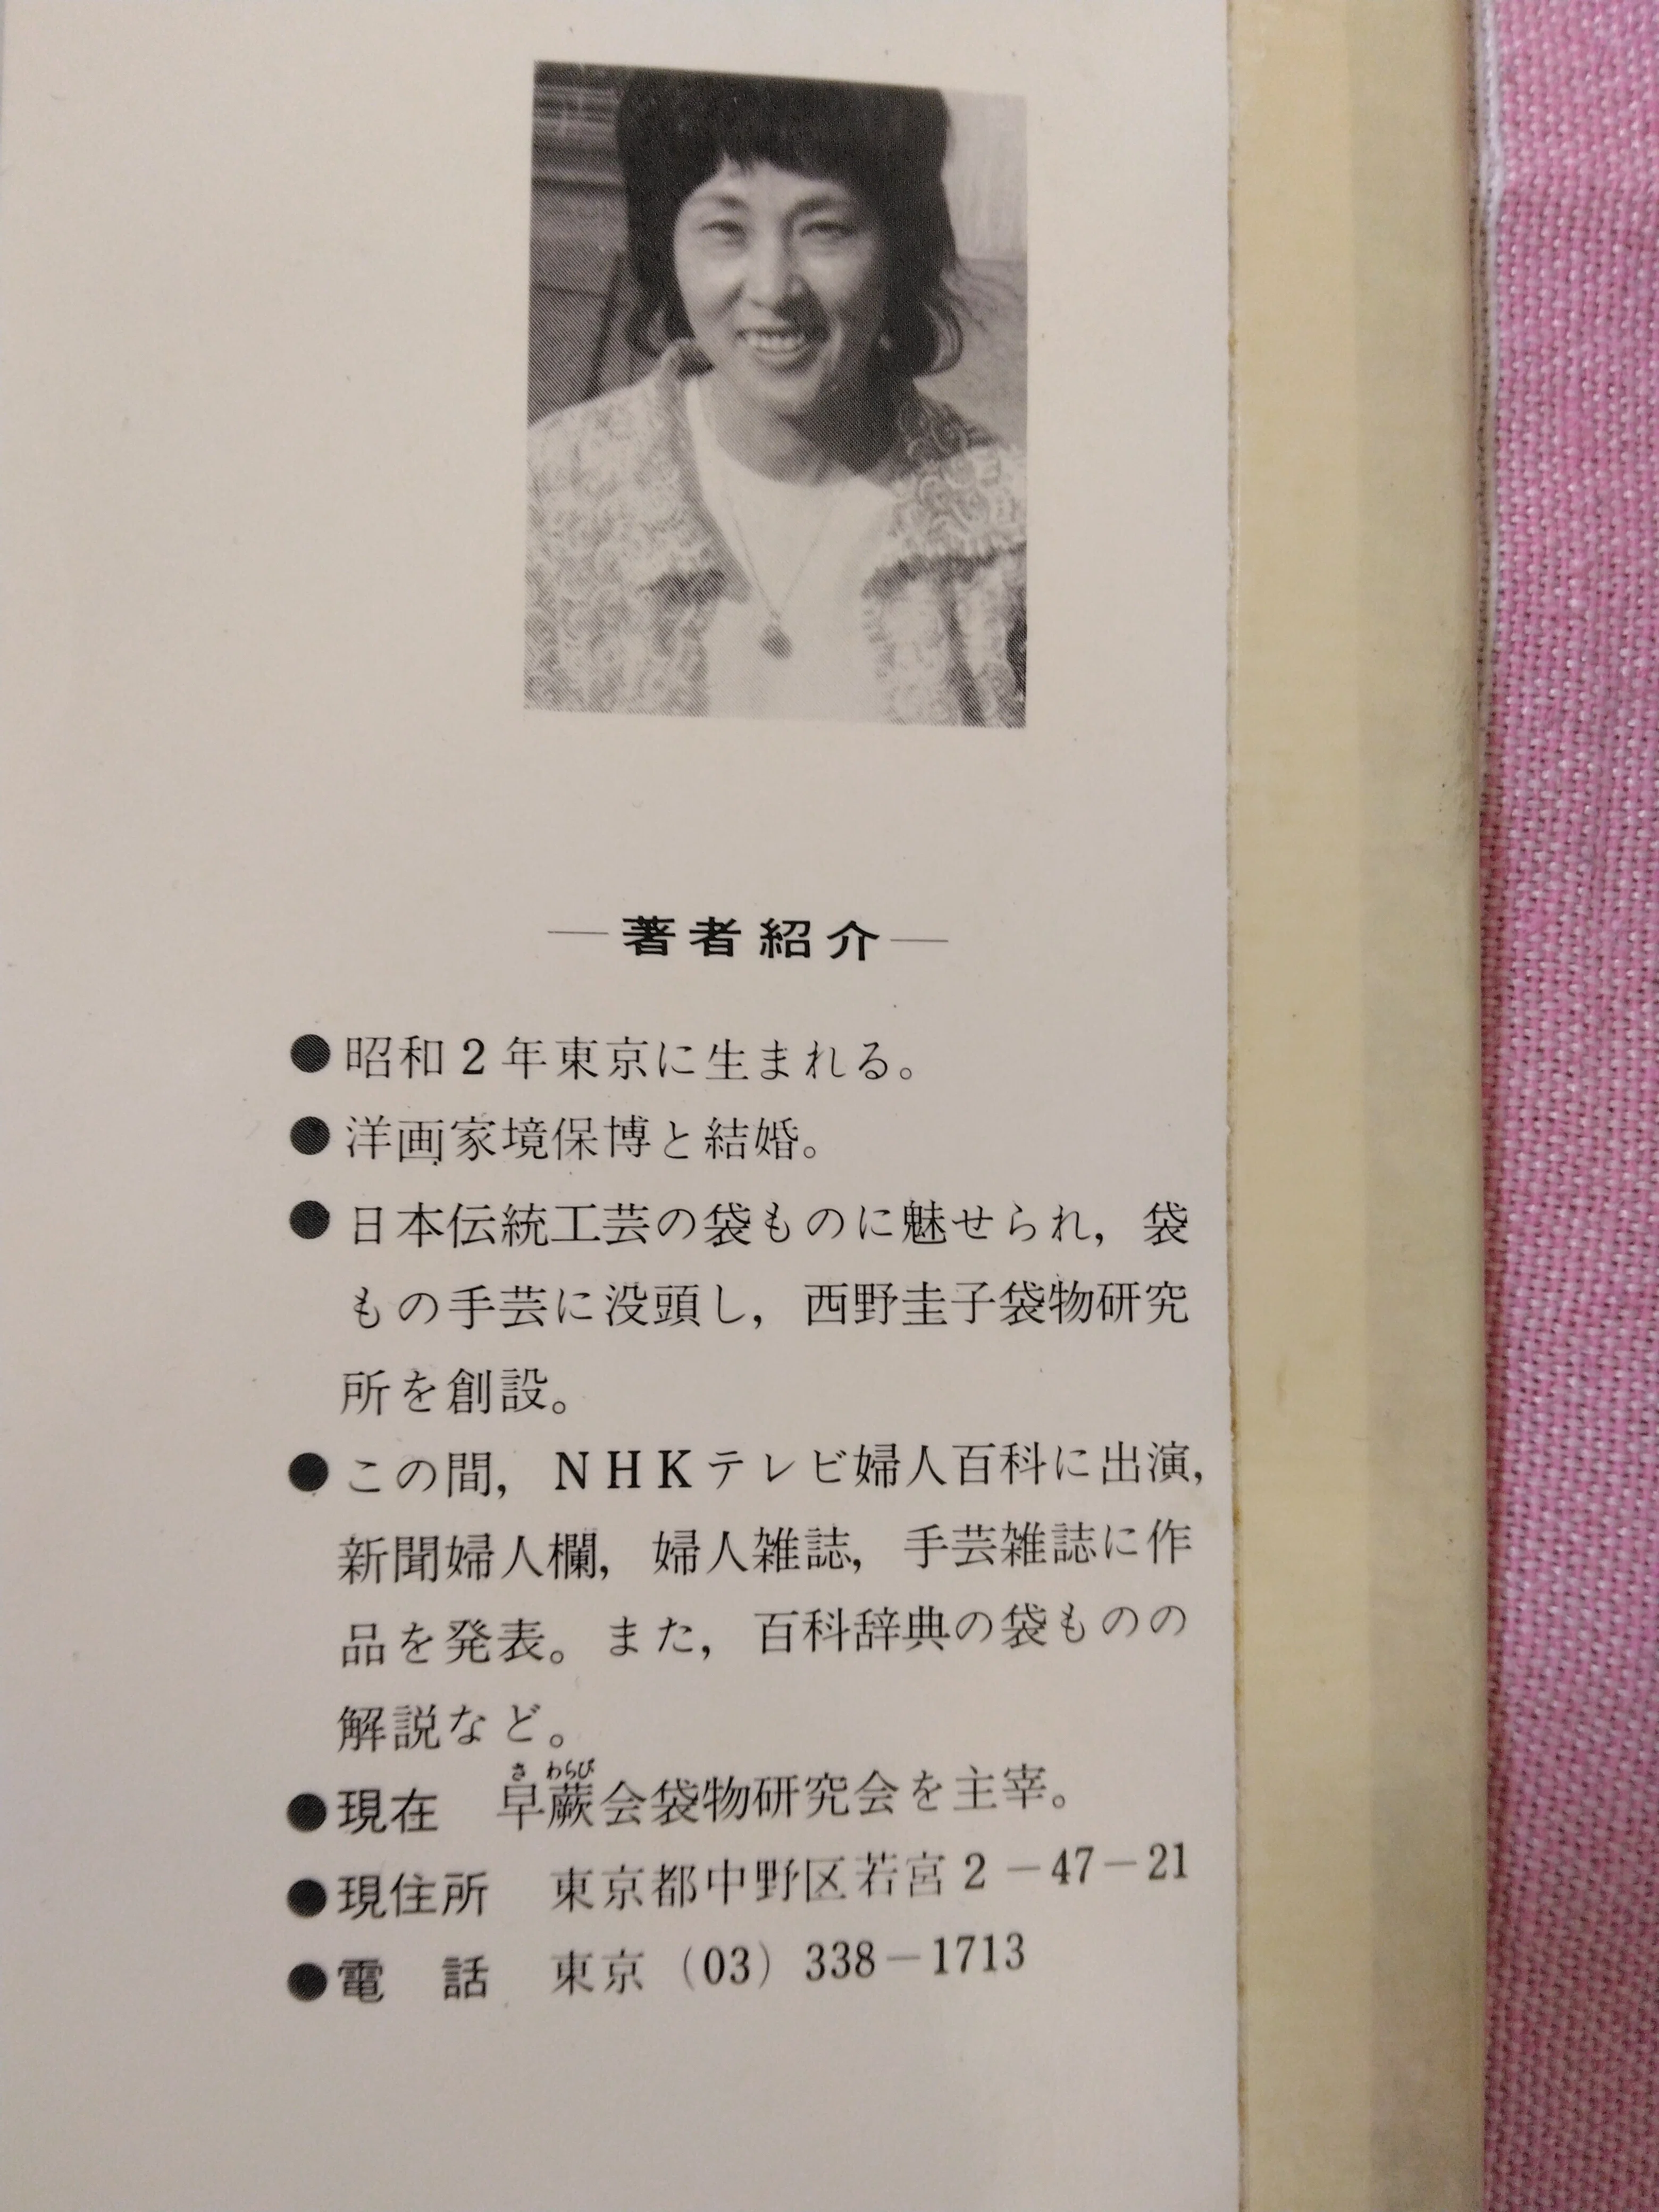 ―著者紹介―
●昭和2年東京に生まれる。
●洋画家境保博と結婚。
●日本伝統工芸の袋ものに魅せられ，袋
もの手芸に没頭し，西野圭子袋物研究
所を創設。
●この間，NHKテレビ婦人百科に出演，
新聞婦人欄，婦人雑誌，手芸雑誌に作
品を発表。また，百科辞典の袋ものの
解説など。
さ わらび
●現在　早蕨会袋物研究会を主宰。
●現住所　東京都中野区若宮2－47－21
●電　話　東京（03）338－1713